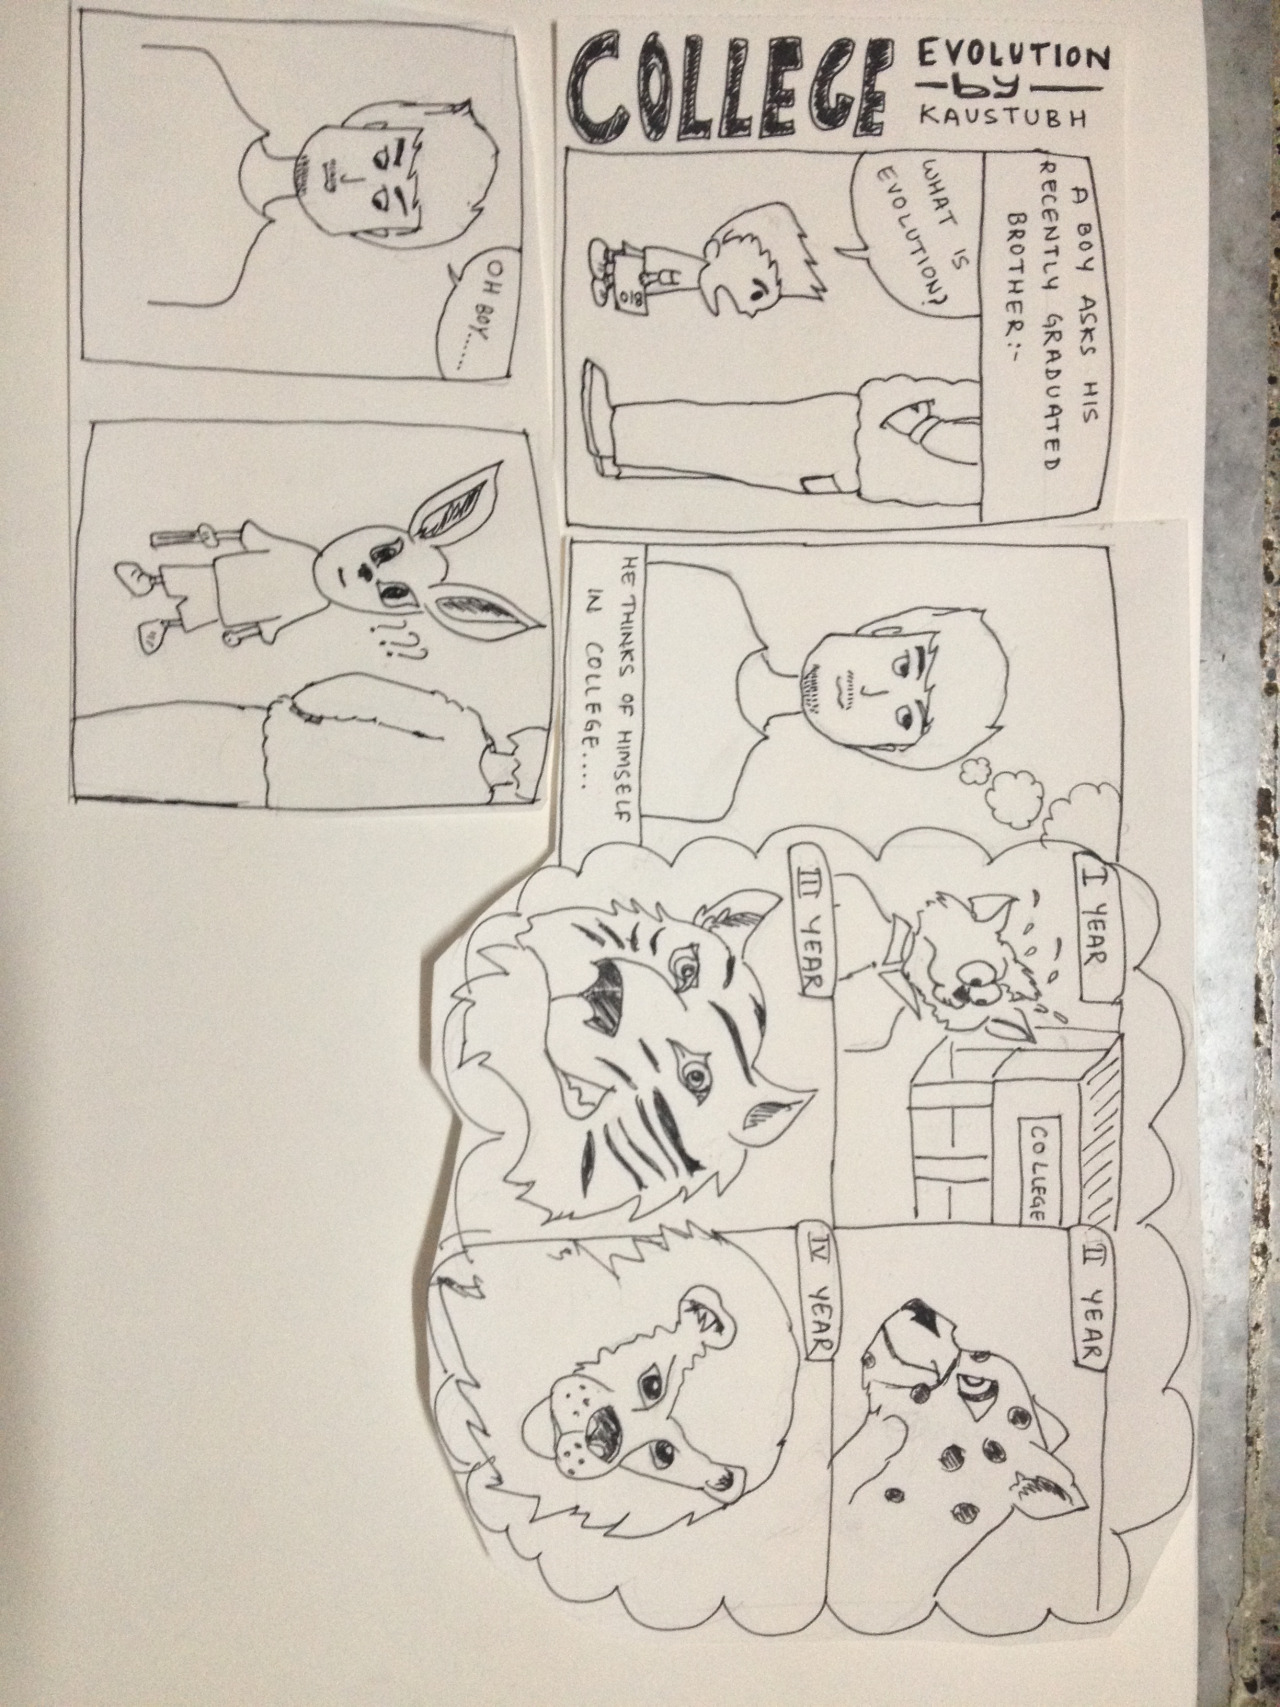 COLLEGE
EVOLUTION
by
KAUSTUBH
A BOY ASKS HIS
RECENTLY GRADUATED
BROTHER:-
WHAT IS
EVOLUTION?
HE THINKS OF HIMSELF
IN COLLEGE....
I YEAR
COLLEGE
II YEAR
III YEAR
IV YEAR
OH BOY......
???